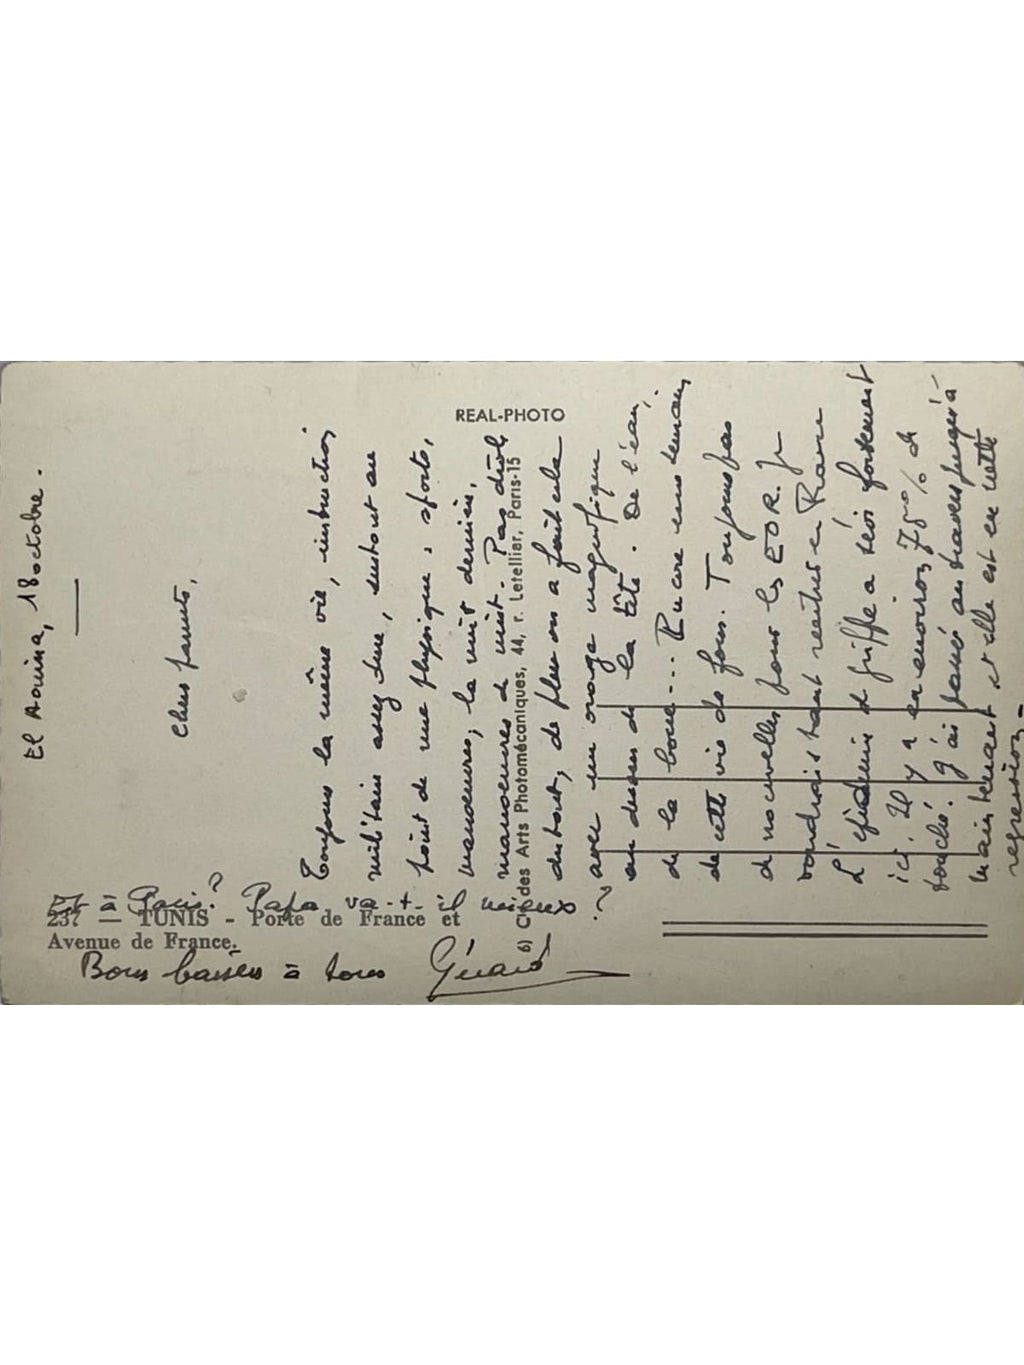 El Aouina, 18 octobre.
Chers parents,
Toujours la même vie, instruction
militaire assez dure, surtout au
point de vue physique : sports,
manœuvres ; la nuit dernière,
manœuvres de nuit. Pas drôle
du tout, de plus on a fait cela
avec un orage magnifique
au dessus de la tête. De l'eau,
de la boue... encore demain
de cette vie de fous. Toujours pas
de nouvelles pour les EOR. Je
voudrais tant rentrer en France
L'épidémie de grippe a très fortement
ici. Il y a eu environ 75% de
touché. J'ai passé au travers jusqu'à
maintenant et elle est en nette
regression -
Et à Paris ? Papa va-t-il mieux ?
Bons baisers à tous Gérard
REAL-PHOTO
6) Cie des Arts Photomécaniques, 44, r. Letellier, Paris-15
237 — TUNIS - Porte de France et
Avenue de France.